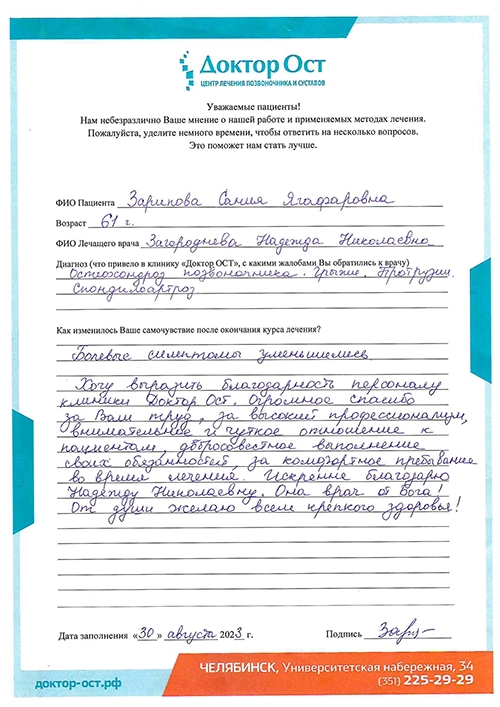 Доктор Ост
ЦЕНТР ЛЕЧЕНИЯ ПОЗВОНОЧНИКА И СУСТАВОВ
Уважаемые пациенты!
Нам небезразлично Ваше мнение о нашей работе и применяемых методах лечения.
Пожалуйста, уделите немного времени, чтобы ответить на несколько вопросов.
Это поможет нам стать лучше.
ФИО Пациента Зарипова Сания Ягафаровна
Возраст 61 г.
ФИО Лечащего врача Загороднева Надежда Николаевна
Диагноз (что привело в клинику «Доктор ОСТ», с какими жалобами Вы обратились к врачу)
Остеохондроз позвоночника. Грыжи. Протрузии.
Спондилоартроз
Как изменилось Ваше самочувствие после окончания курса лечения?
Болевые симптомы уменьшились
Хочу выразить благодарность персоналу
клиники Доктор Ост. Огромное спасибо
за Ваш труд, за высокий профессионализм,
внимательное и чуткое отношение к
пациентам, добросовестное выполнение
своих обязанностей, за комфортное пребывание
во время лечения. Искренне благодарю
Надежду Николаевну. Она врач от Бога!
От души желаю всем крепкого здоровья!
Дата заполнения «30» августа 2023 г. Подпись Зари
ЧЕЛЯБИНСК, Университетская набережная, 34
(351) 225-29-29
доктор-ост.рф